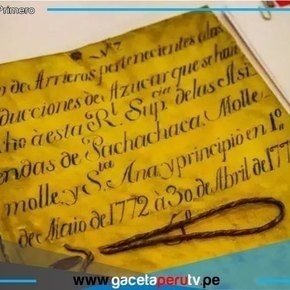 Primero
N.º 7
o de Arrieros pertenecientes a las
ducciones de Azucar que se han
cho à esta Rl. Supcia. de las Asi
endas de Pachachaca, Molle
molle, y Sta. Ana, y principió en 1.º
de Maio de 1772 à 30 de Abril de 177
www.gacetaperutv.pe